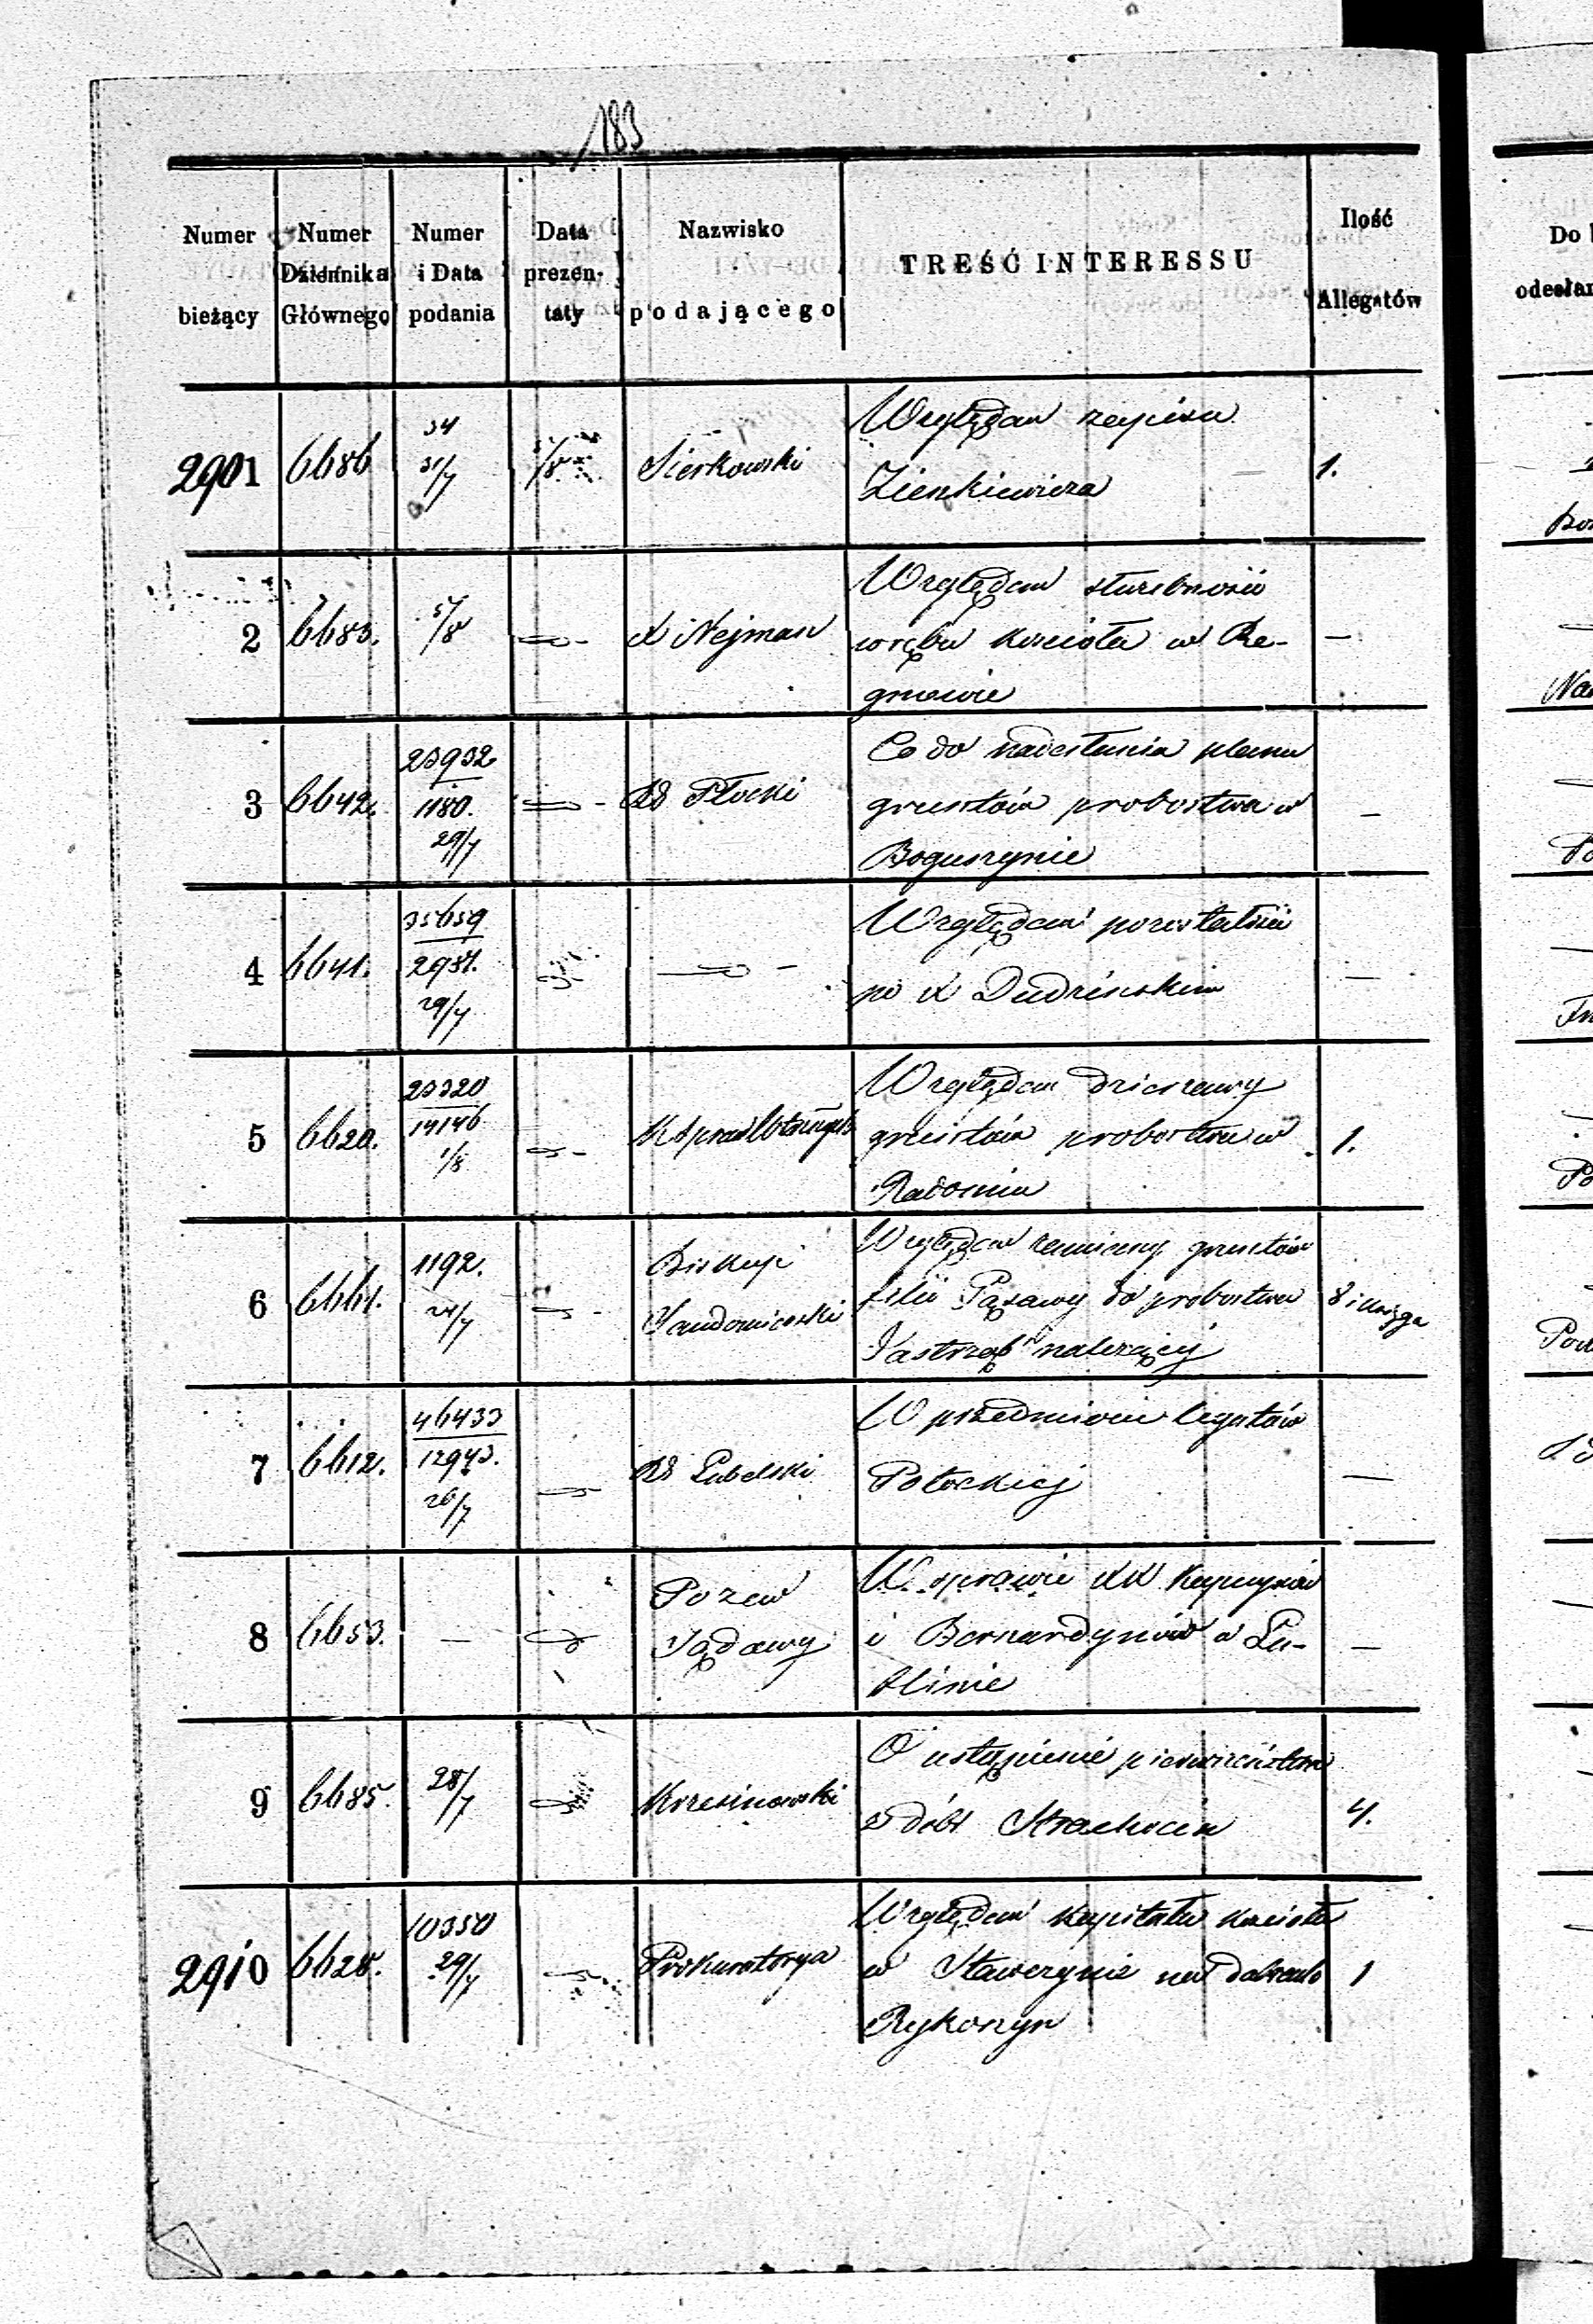 183
Numer bieżący
Numer Dziennika Głównego
Numer i Data podania
Data prezentaty
Nazwisko podającego
TREŚĆ INTERESSU
Ilość Allegatów
Do
odesłan
2901 6686 34 31/7 5/8 Sierkowski Względem zapisu 1.
Zienkiewicza
2 6683. 5/8 X Nejman Względem służebności —
wrębu kościoła w Re-
gnowie
3 6642. 23932 1180. 29/7 RG Płocki Co do nadesłania planu —
gruntów probostwa w
Boguszynie
4 6641. 35659 2981. 29/7 Względem pozostałości —
po X Dudzińskim
5 6620. 23320 14146 1/8 Względem dzierżawy 1.
gruntów probostwa w
Radomiu
6 6661. 1192. 24/7 Biskup Sandomierski Względem zamiany gruntów 8 i księga
filii do probostwa
Jastrząb należącej
7 6612. 46433 12943. 26/7 RG Lubelski W przedmiocie legatów —
Potockiej
8 6653. — Pozew Sądowy W sprawie XX Kapucynów —
i Bernardynów w Lu-
blinie
9 6685. 28/7 Krzesimowski O ustąpienie pierwszeństwa 4.
z dóbr Strachocin
2910 6628. 10350 29/7 Prokuratorya Względem kapitału kościoła 1
w na dobrach
Rykoszyn